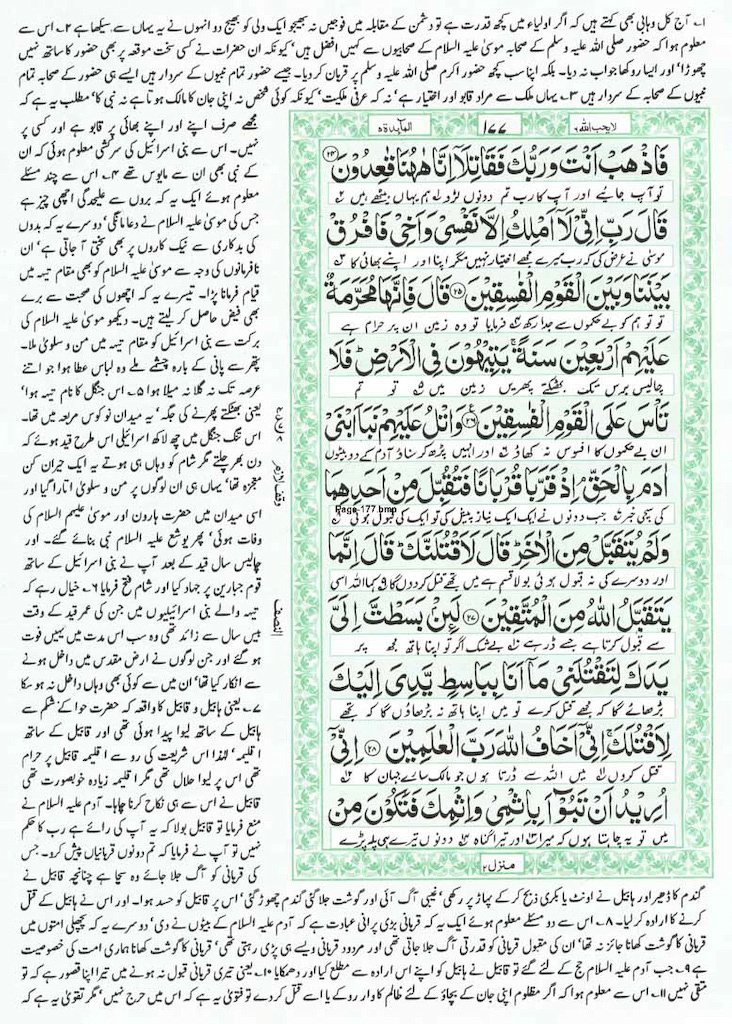 ۱۔ آج کل وہابی بھی کہتے ہیں کہ اگر اولیاء میں کچھ قدرت ہے تو دشمن کے مقابلہ میں فوجیں نہ بھیجو ایک ولی کو بھیج دو انہوں نے یہ یہاں سے سیکھا ہے ۲۔ اس سے
معلوم ہوا کہ حضور صلی اللہ علیہ وسلم کے صحابہ موسیٰ علیہ السلام کے صحابیوں سے کہیں افضل ہیں' کیونکہ ان حضرات نے کسی سخت موقعہ پر بھی حضور کا ساتھ نہیں
چھوڑا' اور ایسا روکھا جواب نہ دیا۔ بلکہ اپنا سب کچھ حضور اکرم صلی اللہ علیہ وسلم پر قربان کر دیا۔ جیسے حضور تمام نبیوں کے سردار ہیں ایسے ہی حضور کے صحابہ تمام
نبیوں کے صحابہ کے سردار ہیں ۳۔ یہاں ملک سے مراد قابو اور اختیار ہے' نہ کہ عرفی ملکیت' کیونکہ کوئی شخص نہ اپنی جان کا مالک ہوتا ہے نہ نبی کا' مطلب یہ ہے کہ
مجھے صرف اپنے اور اپنے بھائی پر قابو ہے اور کسی پر
نہیں۔ اس سے بنی اسرائیل کی سرکشی معلوم ہوئی کہ ان
کے نبی بھی ان سے مایوس تھے ۴۔ اس سے چند مسئلے
معلوم ہوئے ایک یہ کہ بروں سے علیحدگی اچھی چیز ہے
جس کی موسیٰ علیہ السلام نے دعا مانگی' دوسرے یہ کہ بدوں
کی بدکاری سے نیک کاروں پر بھی سختی آ جاتی ہے' ان
نافرمانوں کی وجہ سے موسیٰ علیہ السلام کو بھی مقام تیہ میں
قیام فرمانا پڑا۔ تیسرے یہ کہ اچھوں کی صحبت سے برے
بھی فیض حاصل کر لیتے ہیں۔ دیکھو موسیٰ علیہ السلام کی
برکت سے بنی اسرائیل کو مقام تیہ میں من و سلویٰ ملا۔
پتھر سے پانی کے بارہ چشمے ملے وہ لباس عطا ہوا جو اتنے
عرصہ تک نہ گلا نہ میلا ہوا ۵۔ اس جنگل کا نام تیہ ہوا'
یعنی بھٹکتے پھرنے کی جگہ' یہ میدان نو کوس مربعہ میں تھا۔
اس تنگ جنگل میں چھ لاکھ اسرائیلی اس طرح قید ہوئے کہ
دن بھر چلتے مگر شام کو وہاں ہی ہوتے یہ ایک حیران کن
معجزہ تھا' یہاں ہی ان لوگوں پر من و سلویٰ اتارا گیا اور
اسی میدان میں حضرت ہارون اور موسیٰ علیہم السلام کی
وفات ہوئی' پھر یوشع علیہ السلام نبی بنائے گئے۔ اور
چالیس سال قید کے بعد آپ نے بنی اسرائیل کے ساتھ
قوم جبارین پر جہاد کیا اور شام فتح فرمایا ۶۔ خیال رہے کہ
تیہ والے بنی اسرائیلیوں میں جن کی عمر قید کے وقت
بیس سال سے زائد تھی وہ سب اس مدت میں یہیں فوت
ہو گئے اور جن لوگوں نے ارض مقدس میں داخل ہونے
سے انکار کیا تھا' ان میں سے کوئی بھی وہاں داخل نہ ہو سکا
۷۔ یعنی ہابیل و قابیل کا واقعہ کہ حضرت حوا کے شکم سے
ہابیل کے ساتھ لیوا پیدا ہوئی تھی اور قابیل کے ساتھ
اقلیمہ' لہذا اس شریعت کی رو سے اقلیمہ قابیل پر حرام
تھی اس پر لیوا حلال تھی مگر اقلیمہ زیادہ خوبصورت تھی
قابیل نے اس سے ہی نکاح کرنا چاہا۔ آدم علیہ السلام نے
منع فرمایا تو قابیل بولا کہ یہ آپ کی رائے ہے رب کا حکم
نہیں تو آپ نے فرمایا کہ تم دونوں قربانیاں پیش کرو۔ جس
کی قربانی کو آگ جلا جائے وہ سچا ہے چنانچہ قابیل نے
لا یحب اللہ ۶
۱۷۷
المآئدة ۵
فَاذْهَبْ اَنْتَ وَرَبُّكَ فَقَاتِلَآ اِنَّا هٰهُنَا قٰعِدُوْنَ ﴿۲۴﴾
تو آپ جائیے اور آپ کا رب تم دونوں لڑو ہم یہاں بیٹھے ہیں
قَالَ رَبِّ اِنِّیْ لَآ اَمْلِكُ اِلَّا نَفْسِیْ وَاَخِیْ فَافْرُقْ
موسیٰ نے عرض کی کہ رب میرے مجھے اختیار نہیں مگر اپنا اور اپنے بھائی کا
بَیْنَنَا وَبَیْنَ الْقَوْمِ الْفٰسِقِیْنَ ﴿۲۵﴾ قَالَ فَاِنَّهَا مُحَرَّمَةٌ
تو تو ہم کو بے حکموں سے جدا رکھ فرمایا تو وہ زمین ان پر حرام ہے
عَلَیْهِمْ اَرْبَعِیْنَ سَنَةً ۚ یَتِیْهُوْنَ فِی الْاَرْضِ ؕ فَلَا
چالیس برس تک بھٹکتے پھریں زمین میں تو تم
تَاْسَ عَلَی الْقَوْمِ الْفٰسِقِیْنَ ﴿۲۶﴾ وَاتْلُ عَلَیْهِمْ نَبَاَ ابْنَیْ
ان بے حکموں کا افسوس نہ کھاؤ اور انہیں پڑھ کر سناؤ آدم کے دو بیٹوں
اٰدَمَ بِالْحَقِّ ۘ اِذْ قَرَّبَا قُرْبَانًا فَتُقُبِّلَ مِنْ اَحَدِهِمَا
کی سچی خبر جب دونوں نے ایک ایک نیاز پیش کی تو ایک کی قبول ہوئی
Page-177.bmp
وَلَمْ یُتَقَبَّلْ مِنَ الْاٰخَرِ ؕ قَالَ لَاَقْتُلَنَّكَ ؕ قَالَ اِنَّمَا
اور دوسرے کی نہ قبول ہوئی بولا قسم ہے میں تجھے قتل کر دوں گا کہا اللہ اسی
یَتَقَبَّلُ اللّٰهُ مِنَ الْمُتَّقِیْنَ ﴿۲۷﴾ لَئِنْۢ بَسَطْتَّ اِلَیَّ
سے قبول کرتا ہے جسے ڈر ہے بے شک اگر تو اپنا ہاتھ مجھ پر
یَدَكَ لِتَقْتُلَنِیْ مَآ اَنَا بِبَاسِطٍ یَّدِیَ اِلَیْكَ
بڑھائے گا کہ مجھے قتل کرے تو میں اپنا ہاتھ نہ بڑھاؤں گا کہ تجھے
لِاَقْتُلَكَ ۚ اِنِّیْۤ اَخَافُ اللّٰهَ رَبَّ الْعٰلَمِیْنَ ﴿۲۸﴾ اِنِّیْۤ
قتل کروں میں اللہ سے ڈرتا ہوں جو مالک سارے جہان کا
اُرِیْدُ اَنْ تَبُوْٓءَاۡ بِاِثْمِیْ وَاِثْمِكَ فَتَكُوْنَ مِنْ
میں تو یہ چاہتا ہوں کہ میرا اور تیرا گناہ دونوں تیرے ہی پلہ پڑے
منزل ۲
وقف لازم
النصف
گندم کا ڈھیر اور ہابیل نے اونٹ یا بکری ذبح کر کے پہاڑ پر رکھی' غیبی آگ آئی اور گوشت جلا گئی گندم چھوڑ گئی' اس پر قابیل کو حسد ہوا۔ اور اس نے ہابیل کے قتل
کرنے کا ارادہ کر لیا۔ ۸۔ اس سے دو مسئلے معلوم ہوئے ایک یہ کہ قربانی بڑی پرانی عبادت ہے کہ آدم علیہ السلام کے بیٹوں نے دی' دوسرے یہ کہ پچھلی امتوں میں
قربانی کا گوشت کھانا جائز نہ تھا' ان کی مقبول قربانی کو قدرتی آگ جلا جاتی تھی اور مردود قربانی ویسے ہی پڑی رہتی تھی' قربانی کا گوشت کھانا ہماری امت کی خصوصیت
ہے ۹۔ جب آدم علیہ السلام حج کے لئے گئے تو قابیل نے ہابیل کو اپنے اس ارادہ سے مطلع کیا اور دھمکایا ۱۰۔ یعنی تیری قربانی قبول نہ ہونے میں تیرا اپنا قصور ہے کہ تو
متقی نہیں ۱۱۔ اس سے معلوم ہوا کہ اگر مظلوم اپنی جان کے بچاؤ کے لئے ظالم کا وار روکے یا اسے قتل کر دے تو فتویٰ یہ ہے کہ اس میں حرج نہیں' مگر تقویٰ یہ ہے کہ